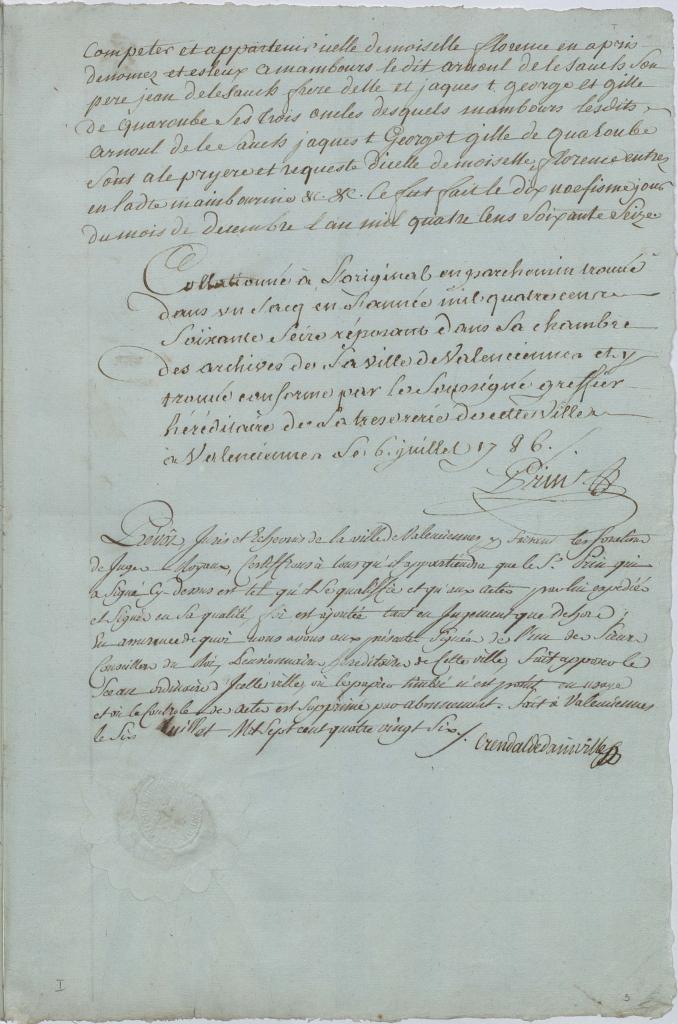 competer et appartenir icelle demoiselle florence en apris
denomes et esleux a mambours le dit arnoul de le sauch son
pere jean de le sauch frere delle et jaques t george et gille
de quaroube ses trois oncles desquels mambours lesdits
arnoul de le sauch jaques t George t gille de quaroube
sont a le pryere et requeste dicelle demoiselle florence entrez
en ladte mainbournie &c &c. Ce fut fait le dix noefisme jour
du mois de decembre l'an mil quatre cens soixante seize
Collationné à l'original en parchemin trouvé
dans un sacq en l'année mil quatre cens
soixante seize réposant dans la chambre
des archives de la ville de Valenciennes et y
trouvé conforme par le soussigné greffier
héréditaire de la tresorerie de cette ville
à Valenciennes le 6 juillet 1786.
Prin
Prevôt, Jurés et Echevins de la ville de Valenciennes, y faisant les fonctions
de Juges Royaux, Certiffions à tous qu'il appartiendra que le Sr. Prin qui
a signé cy dessus est tel qu'il se qualiffie et qu'aux actes par lui expediés
et signés en sa qualité foi est ajoutée tant en Jugement que dehors;
En assurance de quoi nous avons aux présentes signées de l'un de
Conseiller du Roi, Pensionnaire héréditaire de cette ville fait apposer le
Sceau ordinaire d'Icelle ville, où le papier timbré n'est point en usage
et où le Controle des actes est supprimé par abonnement. Fait à Valenciennes
le six Juillet Mil Sept cent quatre vingt Six.
Crendal de Dainville
I
5